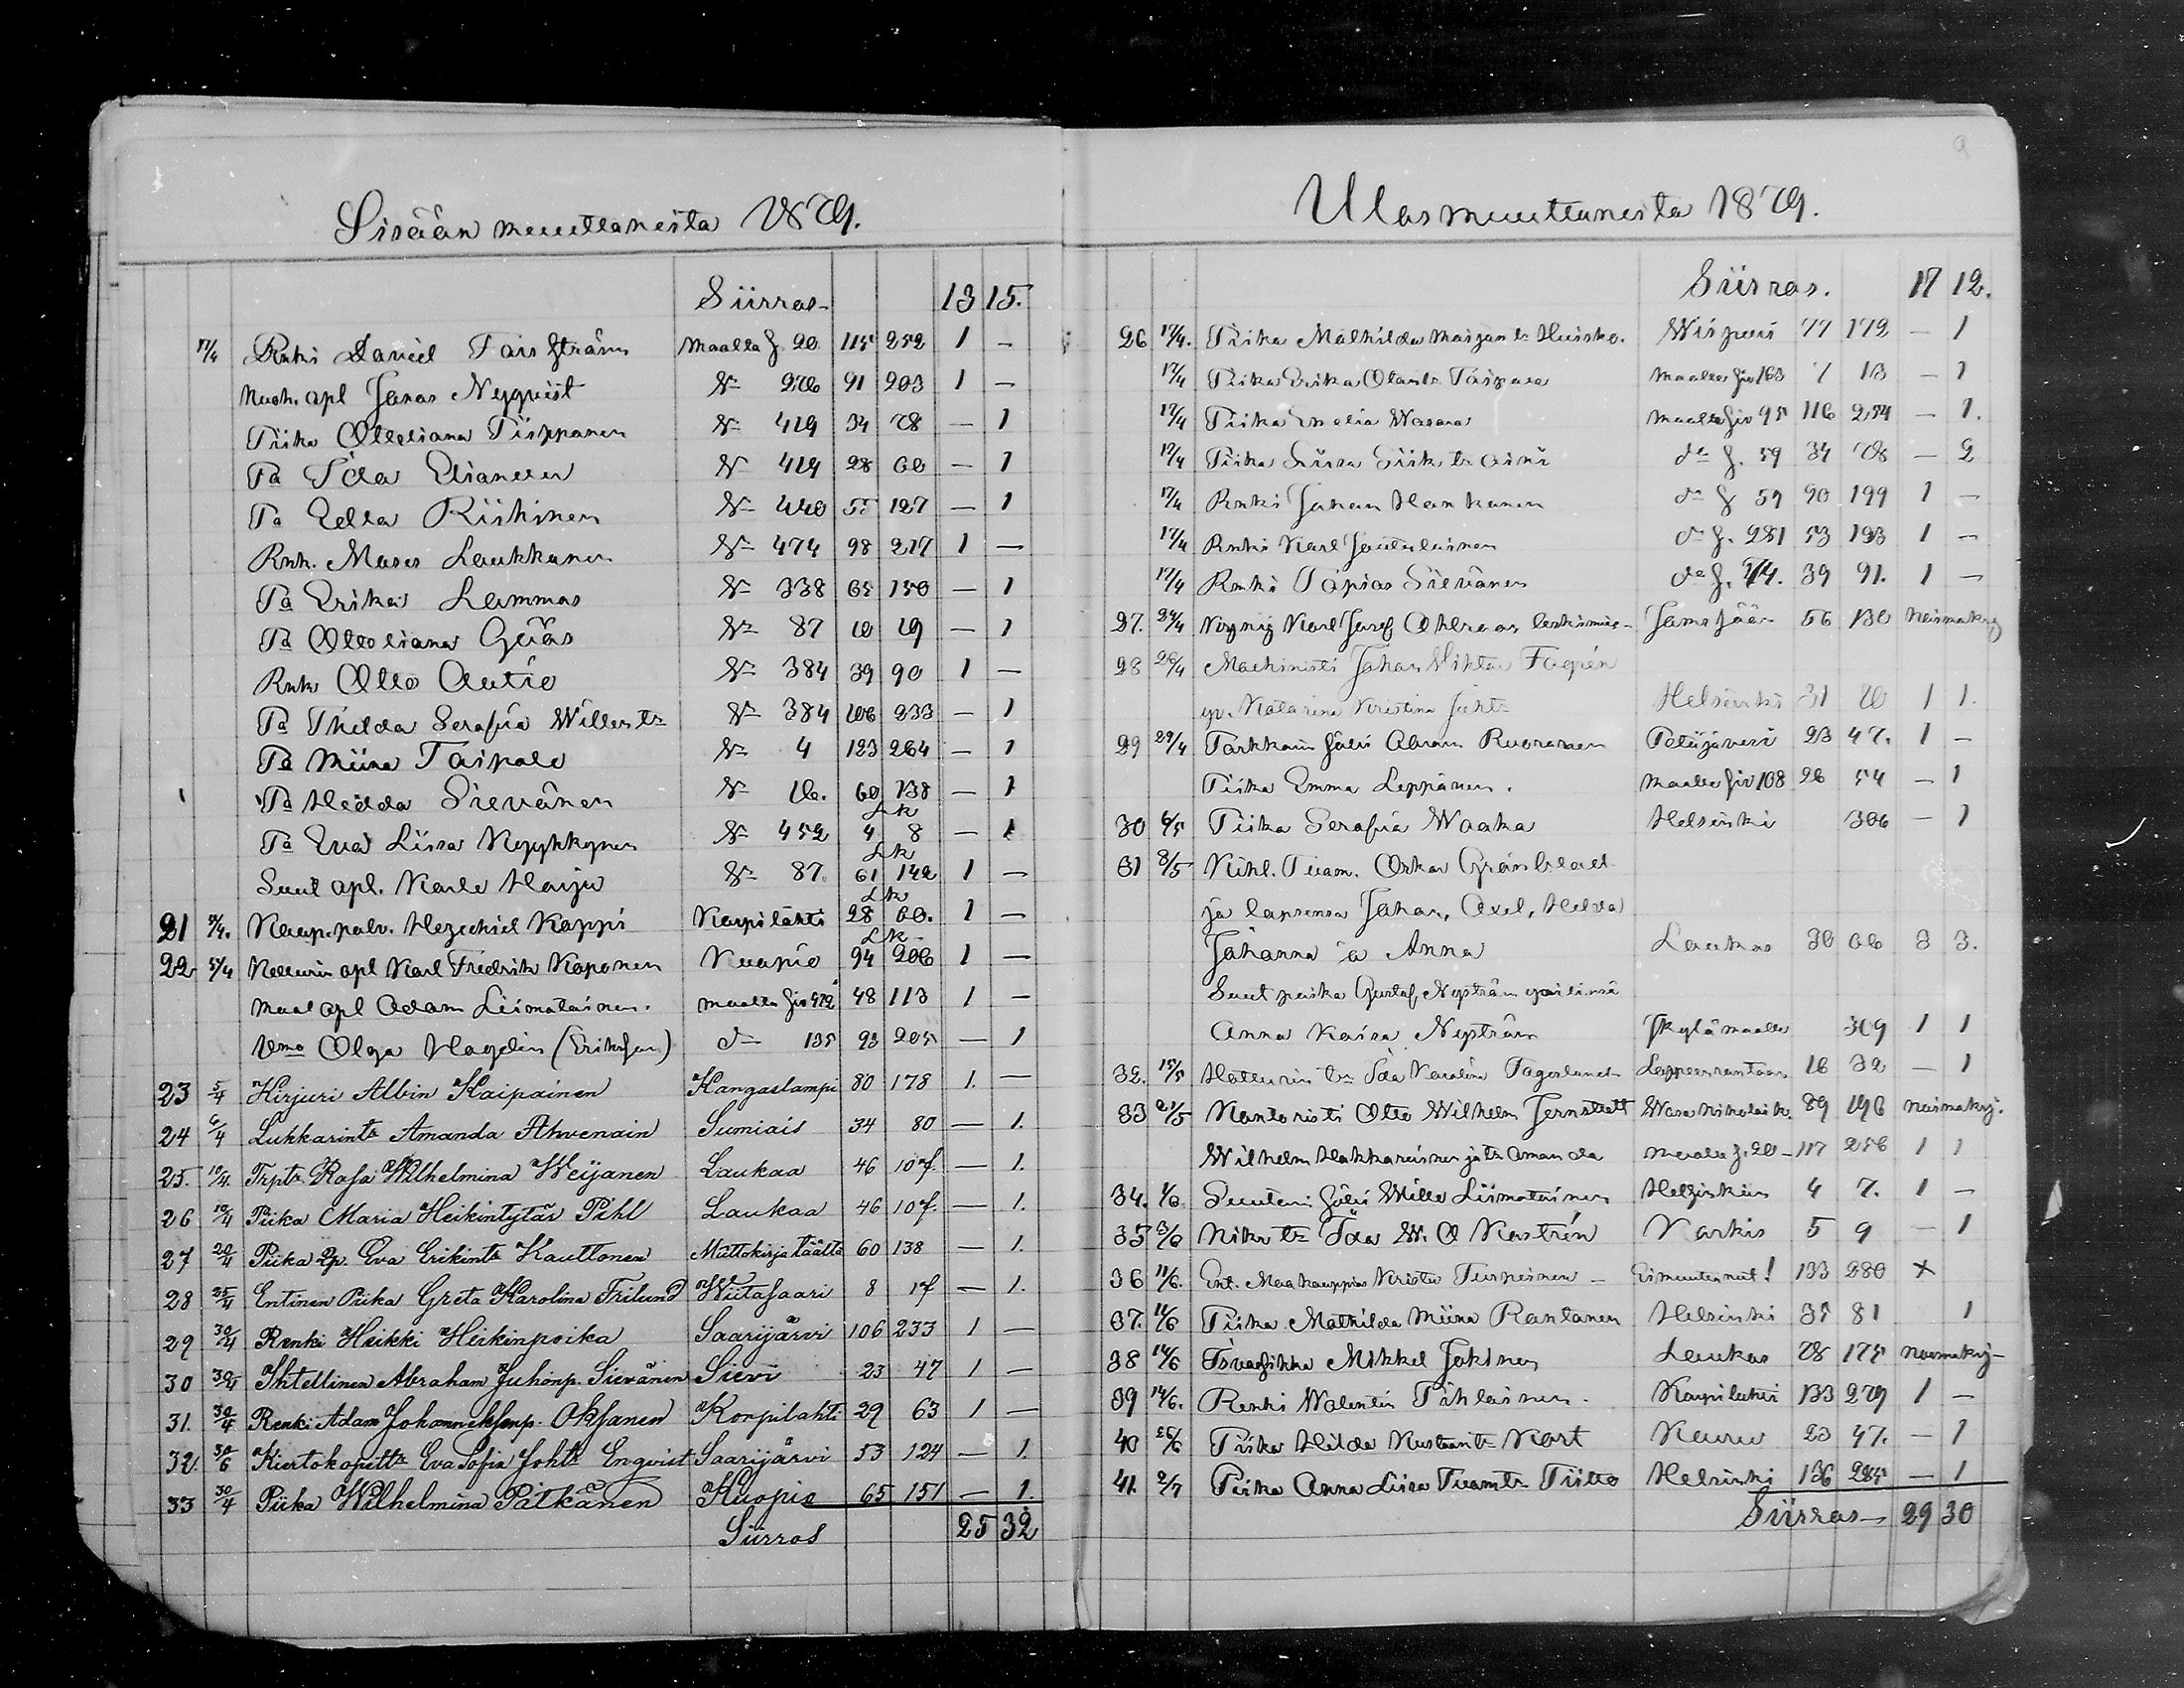 Sisään muuttaneita 1879.
Siirros 13 15.
17/4 Renki Daniel Forsström Maalta f 20 115 252 1 —
Nuoh. opl Jonas Nyqvist 91 203 1 —
Piika Ottiliana Piippanen 419 34 78 — 1
Pa Ida Eliander 419 28 60 — 1
Pa Edla Riikinen 440 55 127 — 1
Rnk. Moses Laukkanen 474 98 217 1 —
Pa Erika Lammas 338 65 150 — 1
Pa Ottoliana Gräs 87 10 19 — 1
Rnk Otto Autio 384 39 90 1 —
Pa Thilda Serafia Willestr 384 106 233 — 1
Pa Miina Taipale 4 123 264 — 1
Pa Hedda Sievänen 16. 60 138 — 1
Lk
Pa Eva Liisa Nyykkynen 452 4 8 — 1
Lk
Suut opl. Karle Harju 87. 61 142 1 —
Lk
21 Kaup. palv. Hezechiel Koppi Korpilahti 28 60. 1 —
Lk
22 5/4 Kellurin opl Karl Fredrik Koponen Kuopio 94 206 1 —
Maal opl Adam Liimatainen. maalta siv 472 48 113 1 —
Olga Hagelin (Erikson) 135 93 205 — 1
23 5/4 Kirjuri Albin Kaipainen Kangaslampi 80 178 1. —
24 6/4 Lukkarintr Amanda Ahvenain Sumiais 34 80 — 1.
25. 10/4. Trptr Rosa Wilhelmina Weijanen Laukaa 46 107. — 1.
26 10/4 Piika Maria Heikintytär Pihl Laukaa 46 107. — 1.
27 20/4 Piika 2p. Eva Erikintr Kauttonen Muttokirja täältä 60 138 — 1.
28 25/4 Entinen Piika Greta Karolina Frilund Wiitasaari 8 17 — 1.
29 30/4 Renki Heikki Heikinpoika Saarijärvi 106 233 1 —
30 30/4 Ihtellinen Abraham Juhonp. Sievänen Sievi 23 47 1 —
31. 30/4 Renki Adam Johanneksenp. Oksanen Korpilahti 29 63 1 —
32. 30/6 Kiertokoulttr Eva Sofia Johtr Enqvist Saarijärvi 53 124 — 1.
33 30/4 Piika Wilhelmina Pätkänen Kuopio 65 151 — 1.
Siirros 25 32
Ulosmuuttaneita 1879.
Siirros. 17 12.
26 17/4. Piika Mathilda Marjan tr Huisko. Wiipuri 77 172 — 1
17/4 Piika Erika Olantr Taipale Maalle siv 163 7 13 — 1
17/4 Piika Amalia Wasara Maalle siv 95 116 254 — 1.
17/4 Piika Liisa Eriktr f. 59 34 78 — 2
17/4 Renki Johan Hankanen 59 90 199 1 —
17/4 Renki Karl Jaatulainen f. 281 53 123 1 —
17/4 Renki Topias Sievänen 39 91. 1 —
27. 24/4 Karl Josef Ahlroos leskimies Jämsään 56 130 Naimakirj
28 26/4 Machinisti Johan Wiktor Fagrén
Katarina Kristina Juhtr Helsinki 31 70 1 1.
29 29/4 Torkkain Abram Ruoranen Petäjävesi 23 47. 1 —
Piika Emma Leppänen. Maalle siv 108 26 54 — 1
30 6/5 Piika Serafia Waaka Helsinki 306 — 1
31 8/5 Kihl. Tuom. Oskar Grönblad
ja lapsensa Johan, Axel, Helda
Johanna ja Anna Laukaa 30 66 3 3.
Suut poika Gustaf Nyström vaimonsa
Anna Kaisa Nyström Jkylä maalle 309 1 1
32. 15/5 Ida Karolina Fagerlund Lappeenrantaan 16 32 — 1
33 21/5 Kantoristi Otto Wilhelm Jernstett Wasa Nikolaik. 89 196 Naimakirj.
Wilhelm Hakkarainen ja tr Amanda Maalle f. 20 117 256 1 1
34. 1/6 Suutari Wille Liimatainen Helsinkiin 4 7. 1 —
35 3/6 Ida W. O Kastrén Karkis 5 9 — 1
36 11/6. Ent. Maakauppias Kristo Turkinen — Ei muutanut! 133 280 ×
37. 14/6 Piika Mathilda Miina Rantanen Helsinki 35 81 1
38 14/6 Mikkel Jokinen Laukaa 78 175 Naimakirj
39 14/6. Renki Walentin Pihlainen. Korpilahti 133 279 1 —
40 26/6 Piika Hilda Kustaantr Kort Keuru 23 47. — 1
41. 2/7 Piika Anna Liisa Tuomtr Tiitto Helsinki 136 285 — 1
Siirros 29 30